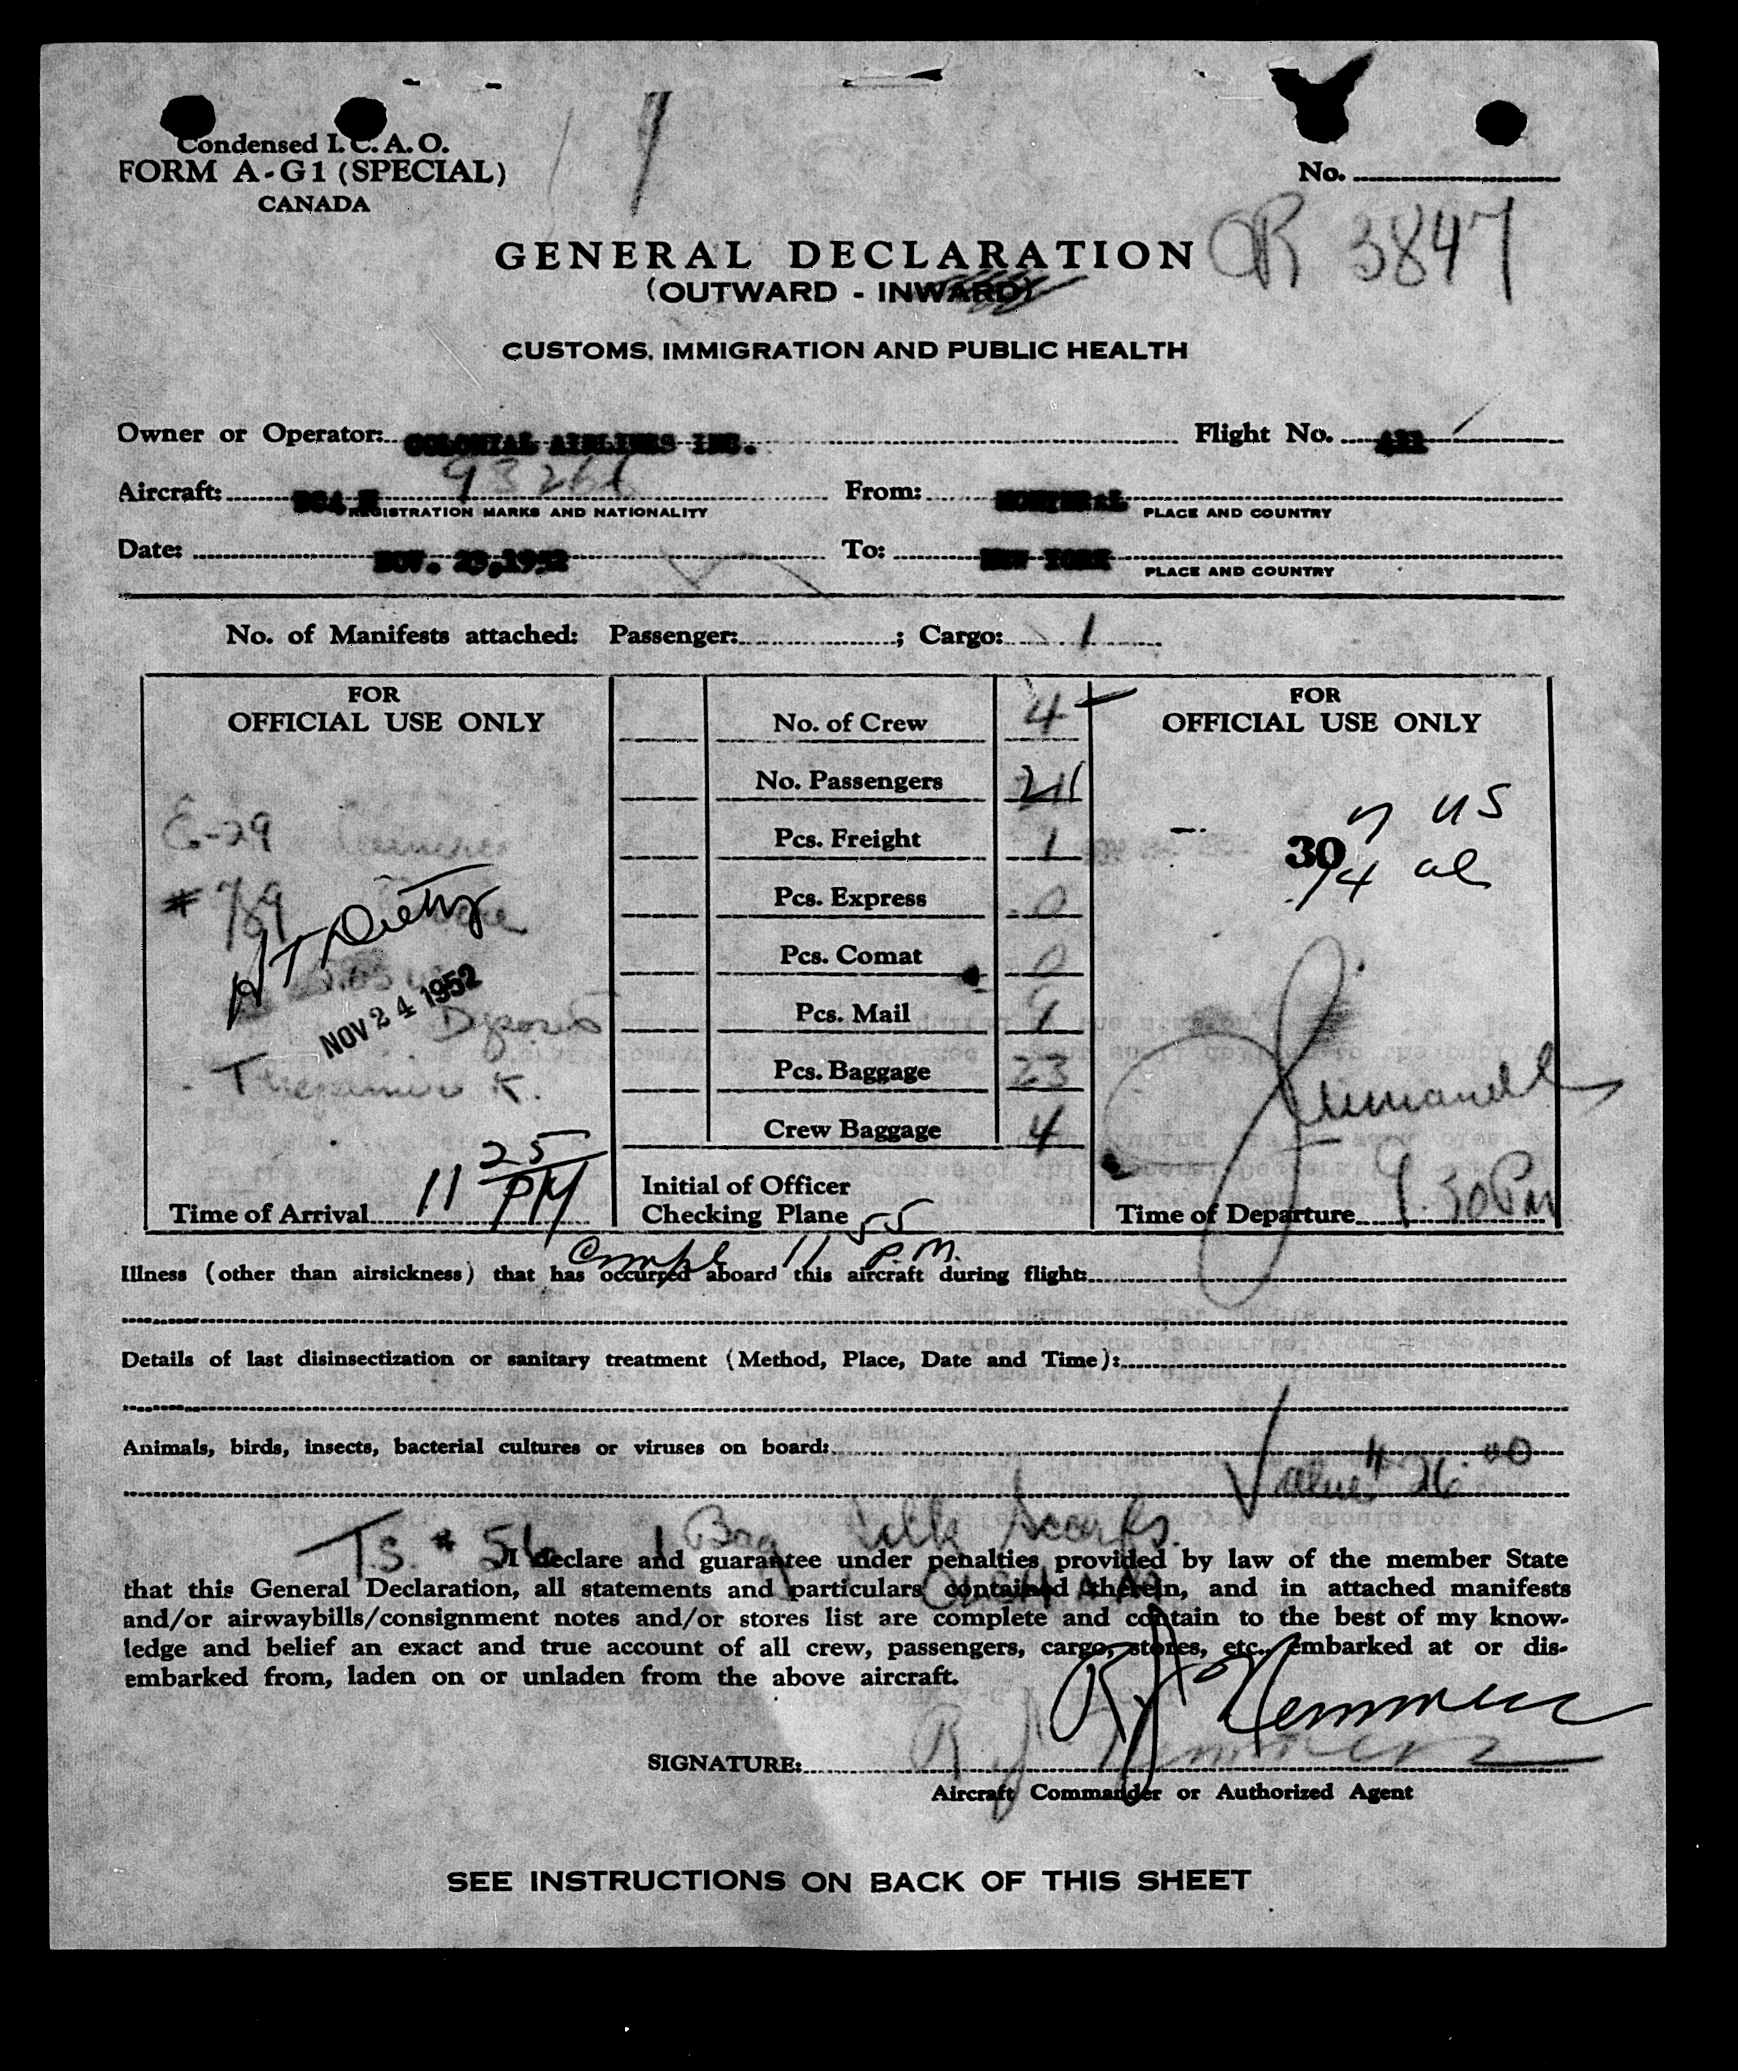 Condensed I.C.A.O.
FORM A-G1 (SPECIAL)
CANADA
No.
OR 3847
GENERAL DECLARATION
(OUTWARD - INWARD)
CUSTOMS, IMMIGRATION AND PUBLIC HEALTH
Owner or Operator: COLONIAL AIRLINES INC. Flight No.
Aircraft: DC4 N 93266 From: MONTREAL
REGISTRATION MARKS AND NATIONALITY PLACE AND COUNTRY
Date: NOV. 23,1952 To: NEW YORK
PLACE AND COUNTRY
No. of Manifests attached: Passenger: ; Cargo: 1
FOR
OFFICIAL USE ONLY
E-29
# 789
H T Dietz
NOV 24 1952
Deposit
K.
Time of Arrival 11 25 PM
No. of Crew 4
No. Passengers
Pcs. Freight 1
Pcs. Express 0
Pcs. Comat 0
Pcs. Mail 9
Pcs. Baggage 23
Crew Baggage 4
Initial of Officer
Checking Plane
FOR
OFFICIAL USE ONLY
30
US
al
Time of Departure 9.30 Pm
Compl 11 P.M.
Illness (other than airsickness) that has occurred aboard this aircraft during flight:
Details of last disinsectization or sanitary treatment (Method, Place, Date and Time):
Animals, birds, insects, bacterial cultures or viruses on board:
Value $ 26.00
T.S. # 56 1 Bag Silk Scarfs.
I declare and guarantee under penalties provided by law of the member State
that this General Declaration, all statements and particulars contained therein, and in attached manifests
and/or airwaybills/consignment notes and/or stores list are complete and contain to the best of my know-
ledge and belief an exact and true account of all crew, passengers, cargo, stores, etc., embarked at or dis-
embarked from, laden on or unladen from the above aircraft.
R J Hemmerz
SIGNATURE: R J Hemmerz
Aircraft Commander or Authorized Agent
SEE INSTRUCTIONS ON BACK OF THIS SHEET